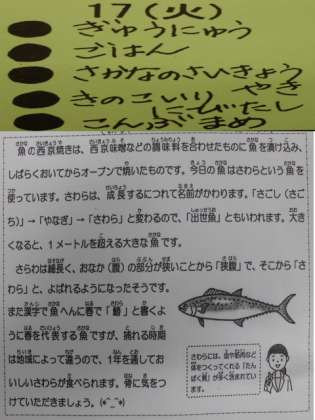 17(火)
ぎゅうにゅう
ごはん
さかなのさいきょう
やき
きのこいり
にびたし
こんぶまめ
魚の西京焼きは、西京味噌などの調味料を合わせたものに魚を漬け込み、
しばらくおいてからオーブンで焼いたものです。今日の魚はさわらという魚を
使っています。さわらは、成長するにつれて名前がかわります。「さごし（さご
ち）」→「やなぎ」→「さわら」と変わるので、「出世魚」ともいわれます。大き
くなると、1メートルを超える大きな魚です。
さわらは細長く、おなか（腹）の部分が狭いことから「狭腹」で、そこから「さ
わら」と、よばれるようになったそうです。
また漢字で魚へんに春で「鰆」と書くよ
うに春を代表する魚ですが、捕れる時期
は地域によって違うので、1年を通してお
いしいさわらが食べられます。骨に気をつ
けていただきましょう。(*^_^*)
さわらには、血や筋肉など
体をつくってくれる「たん
ぱく質」が多く含まれてい
ます。